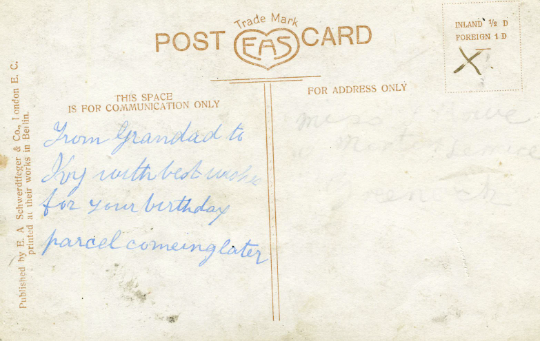 Trade Mark
POST EAS CARD
INLAND ½ D
FOREIGN 1 D
X
THIS SPACE
IS FOR COMMUNICATION ONLY
FOR ADDRESS ONLY
From Grandad to
Ivy with best wishes
for your birthday
parcel comeing later
Miss
Published by E. A. Schwerdtfeger & Co., London E. C.
printed at their works in Berlin.